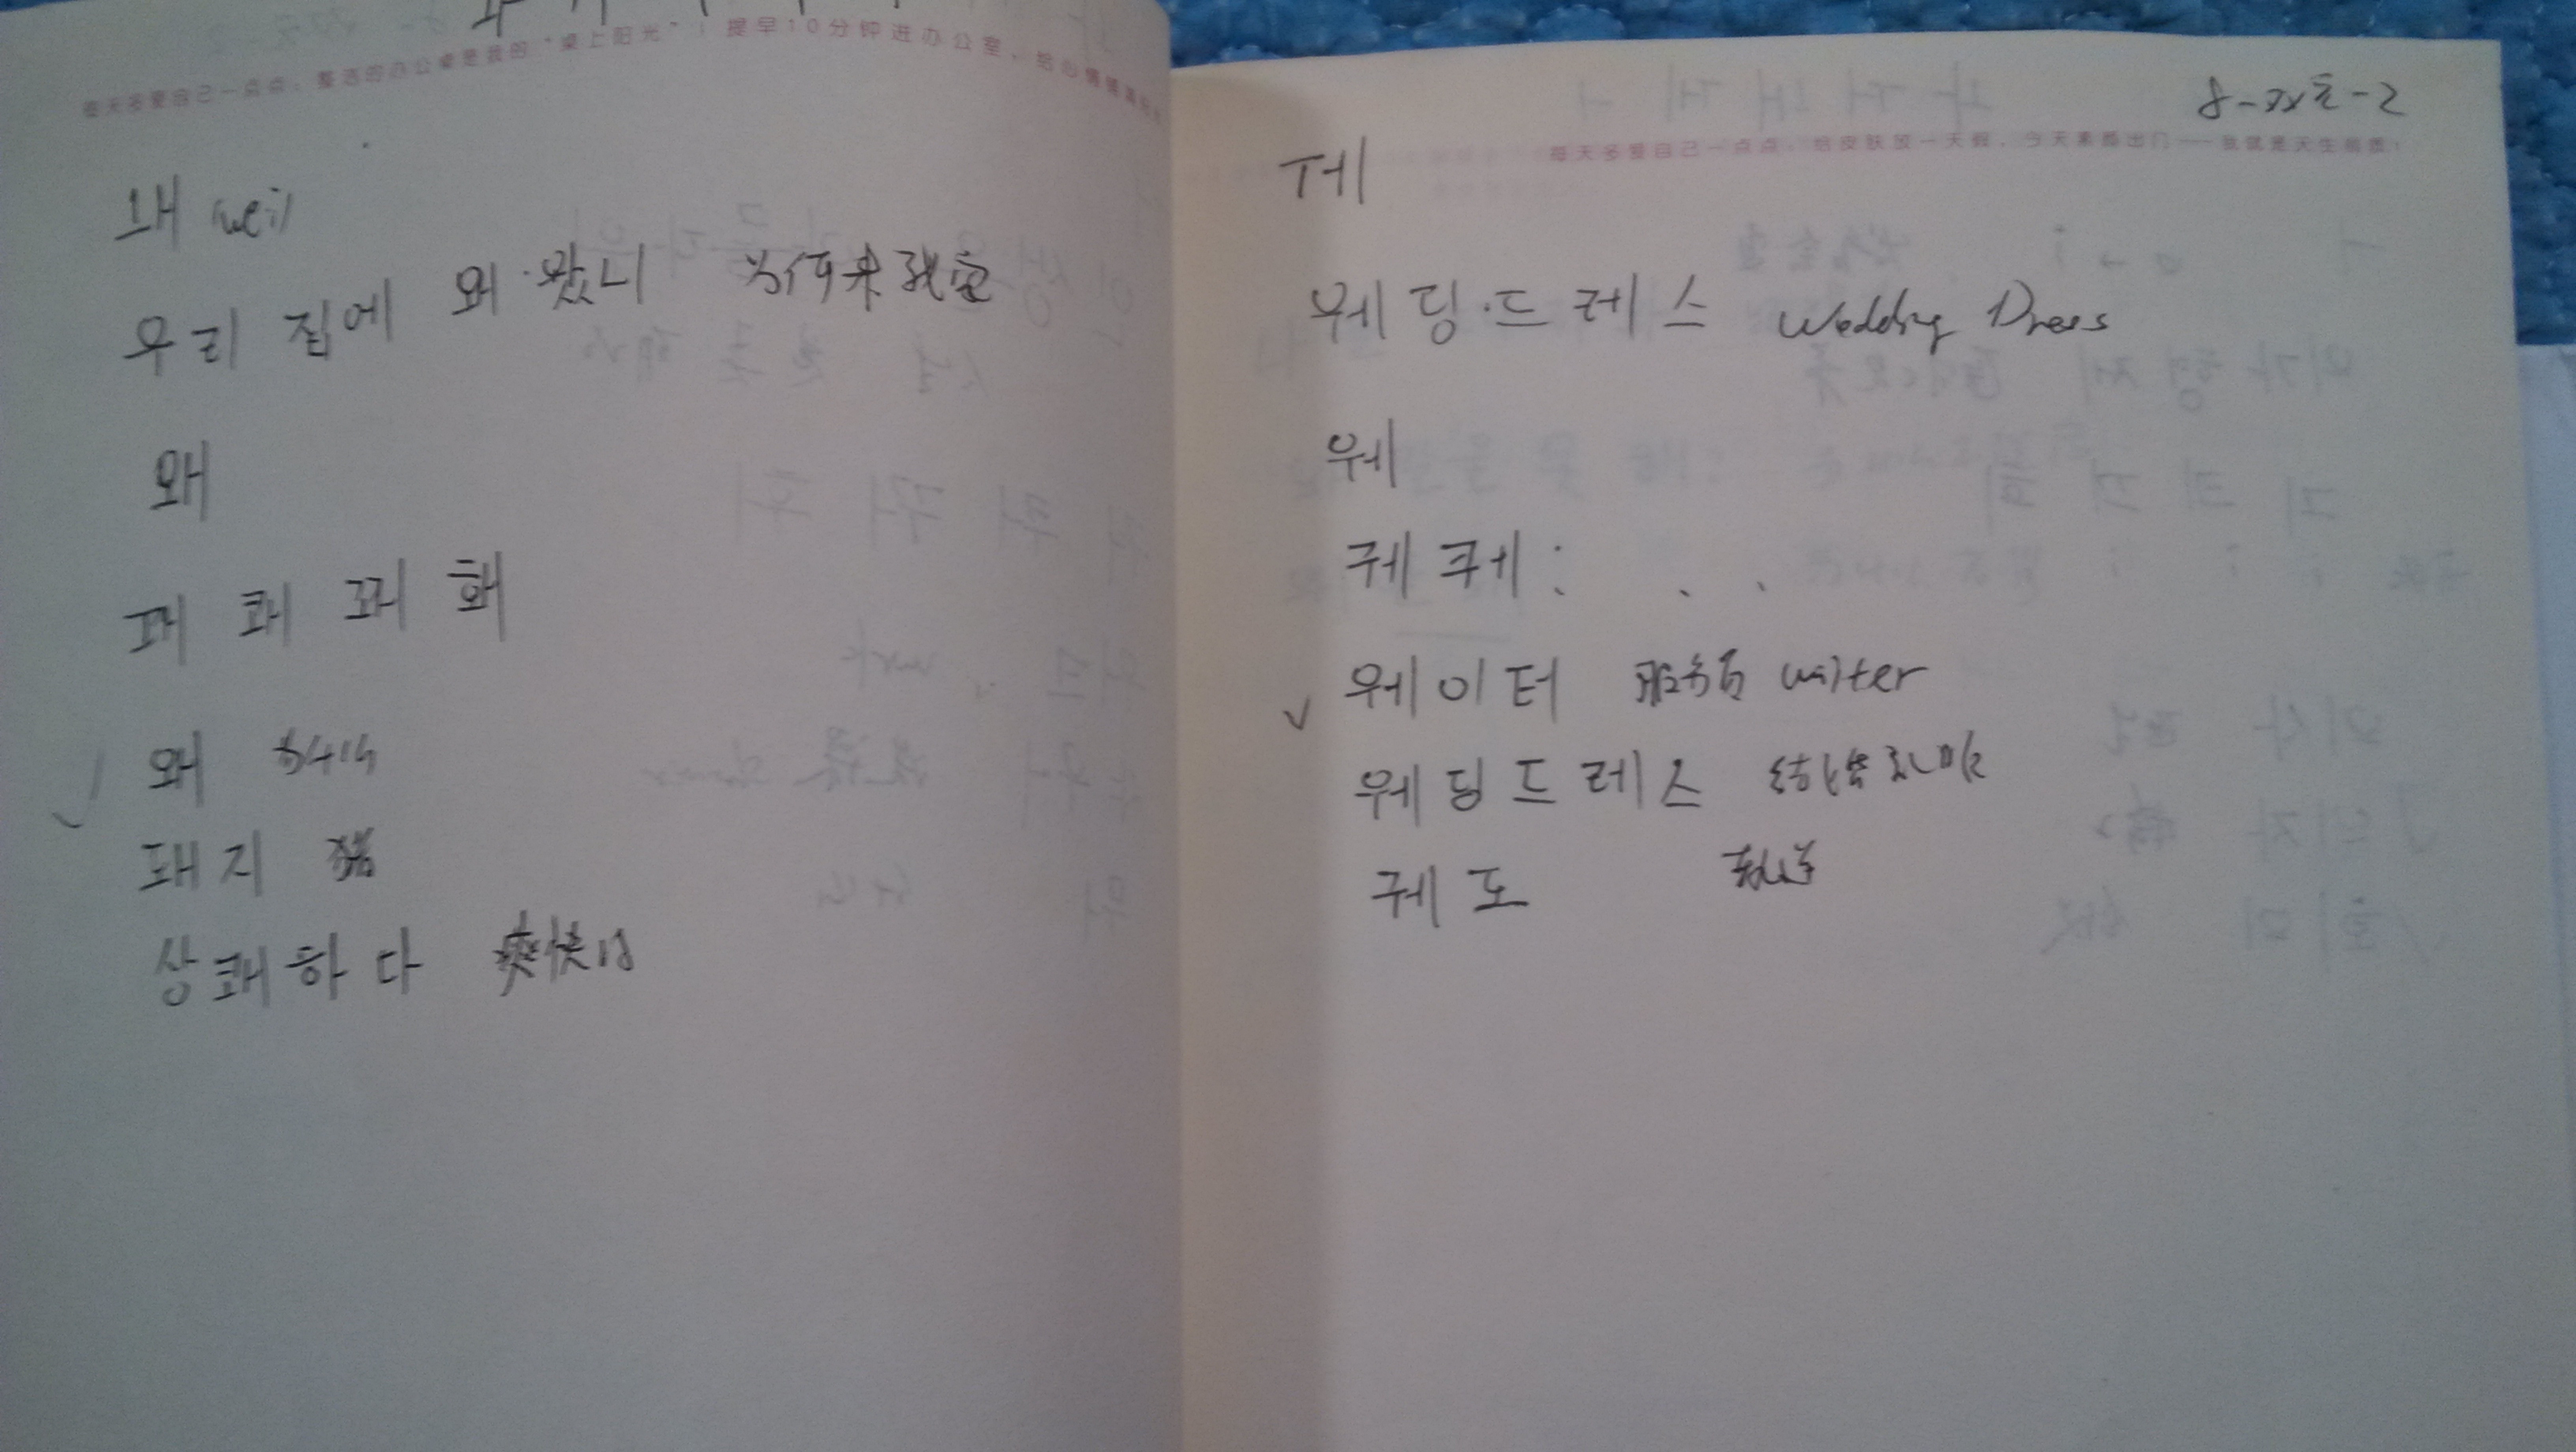 每天多爱自己一点点，整洁的办公桌是我的“桌上阳光”！提早10分钟进办公室，给心情
ㅙ (wei)
우리 집에 왜·왔니 为何来我家
왜
괘 쾌 꽤 홰
왜 为什么
돼지 猪
상쾌하다 爽快的
8-双元-2
每天多爱自己一点点，给皮肤放一天假，今天素颜出门——我就是天生丽质！
ㅞ
웨딩·드레스 Wedding Dress
웨
궤 퀘 :
웨이터 服务员 waiter
웨딩드레스 结婚礼服
궤도 轨道